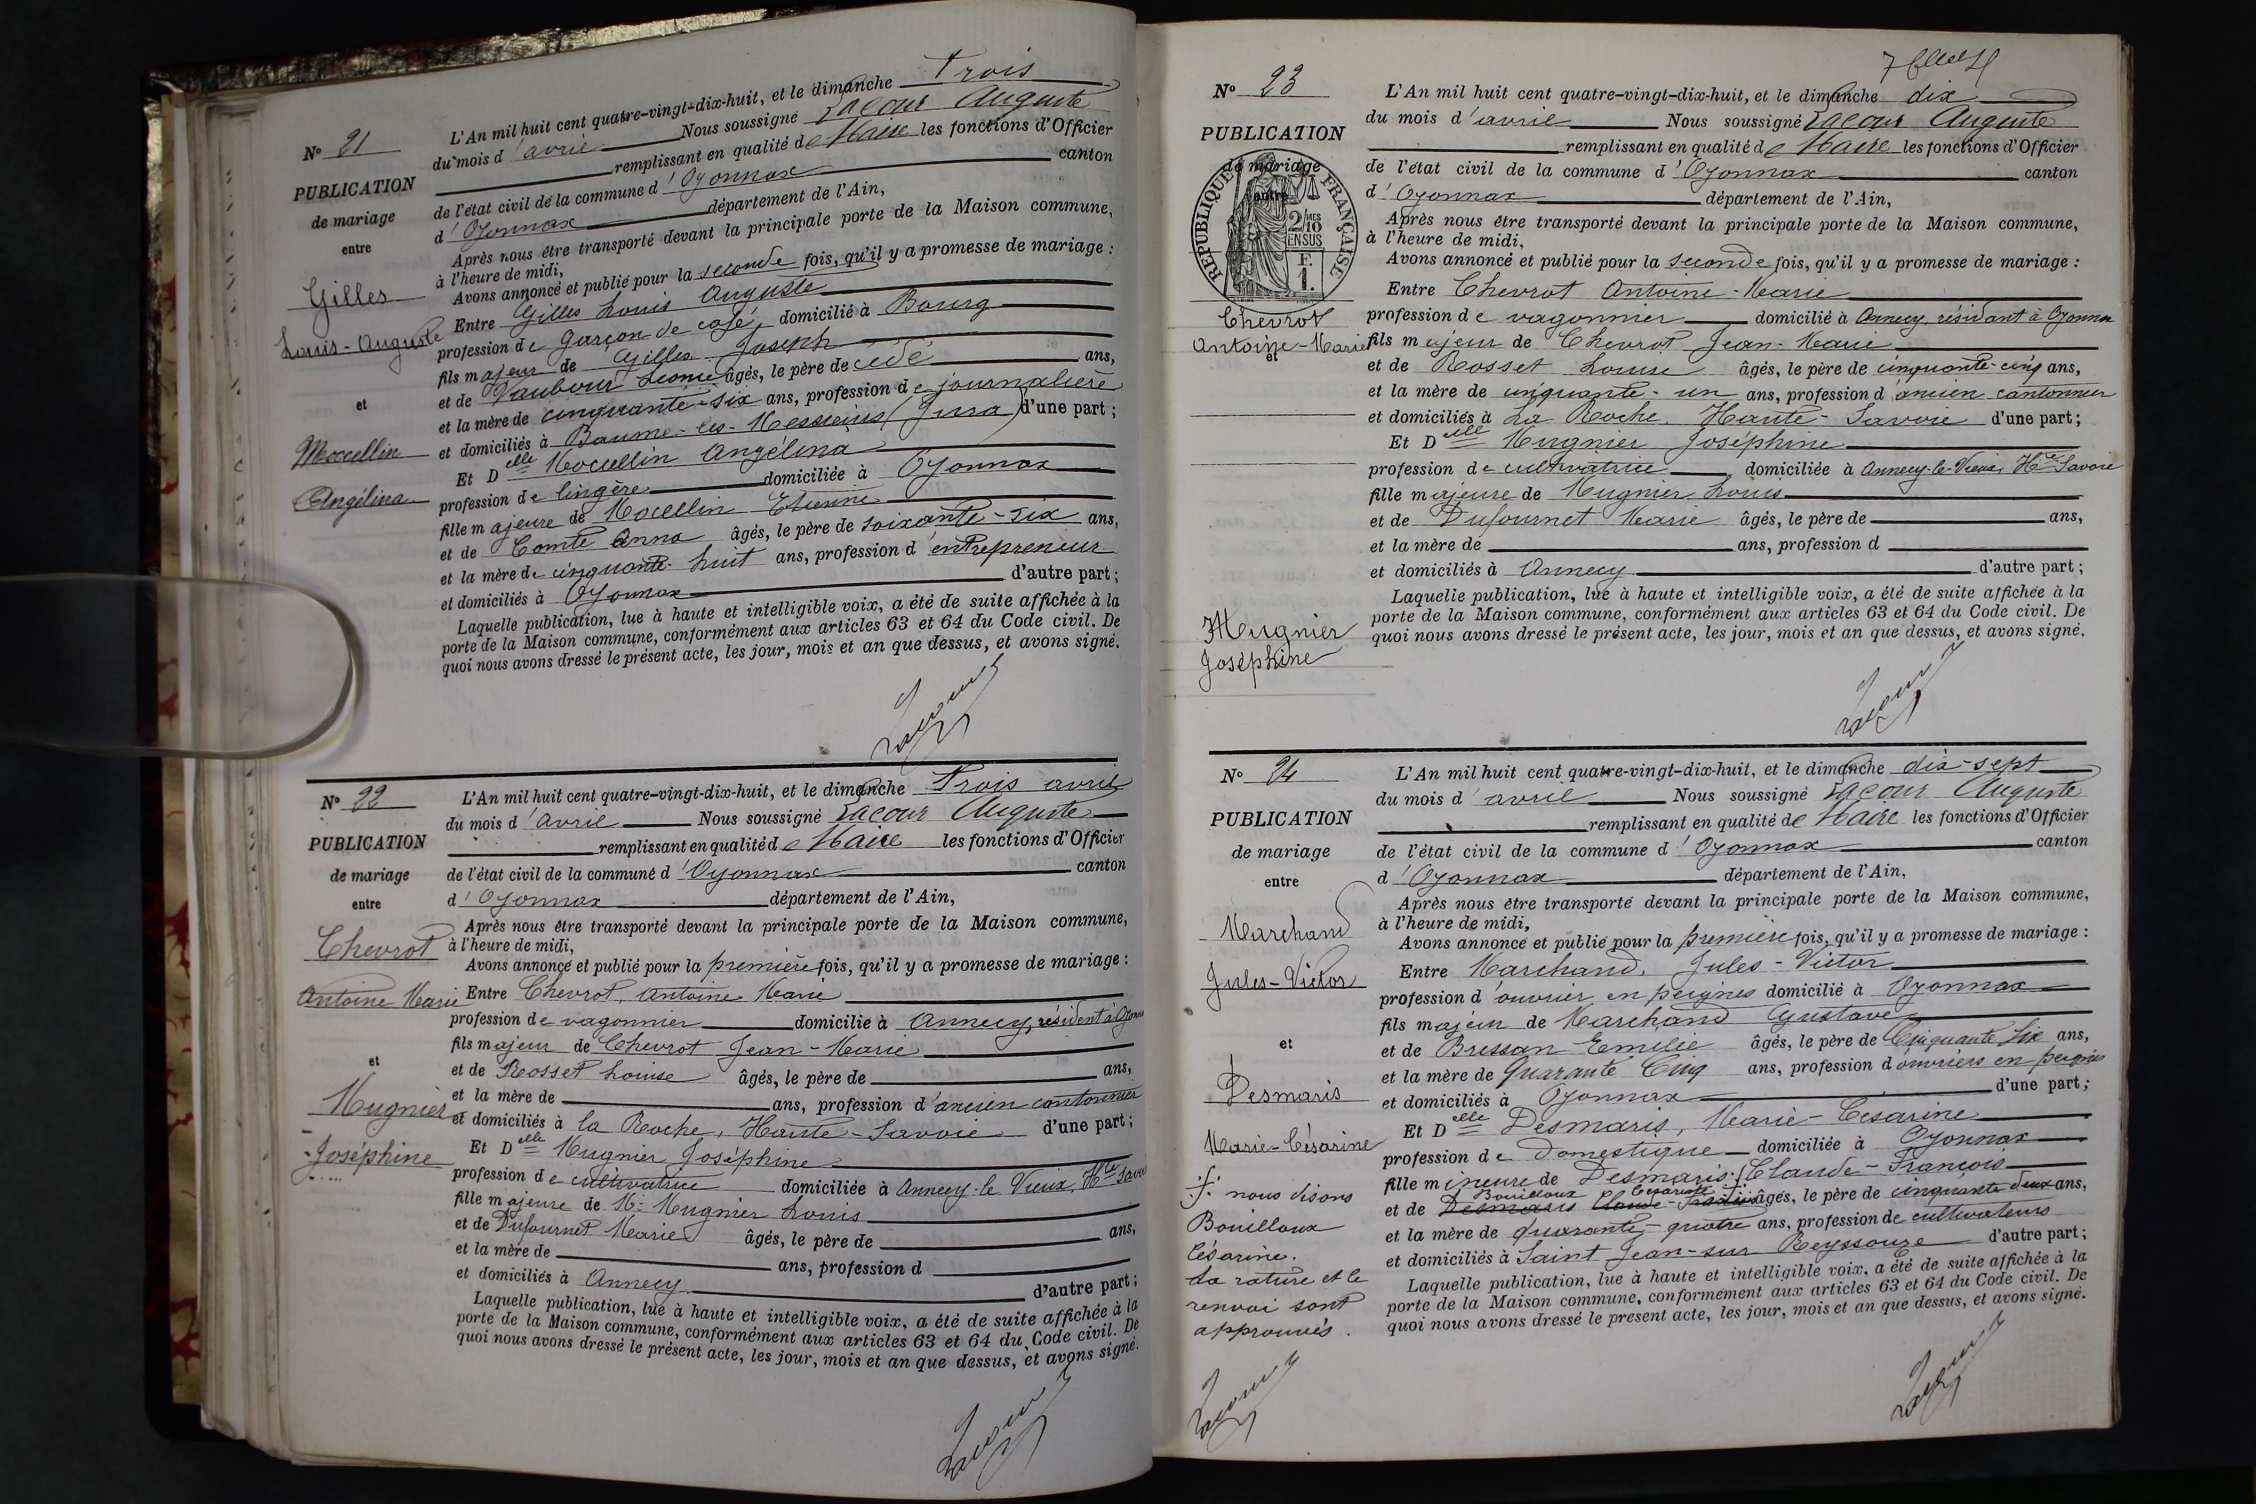 L'An mil huit cent quatre-vingt-dix-huit, et le dimanche Trois
N° 21
du mois d'avril Nous soussigné Lacour Auguste
remplissant en qualité de Maire les fonctions d'Officier
PUBLICATION
de l'état civil de la commune d'Oyonnax canton
de mariage
d'Oyonnax département de l'Ain,
entre
Après nous être transporté devant la principale porte de la Maison commune,
à l'heure de midi,
Avons annoncé et publié pour la seconde fois, qu'il y a promesse de mariage :
Gilles
Entre Gilles Louis Auguste
Louis-Auguste
profession de garçon de café, domicilié à Bourg
fils majeur de Gilles Joseph
et de Vaubour Leonie âgés, le père de cédé ans,
et
et la mère de cinquante-six ans, profession de journalière
et domiciliés à Baume-les-Messieurs (Jura) d'une part ;
Mocellin
Et Delle Mocellin Angélina
Angélina
profession de lingère domiciliée à Oyonnax
fille majeure de Mocellin Etienne
et de Comte Anna âgés, le père de soixante-six ans,
et la mère de cinquante-huit ans, profession d'entrepreneur
et domiciliés à Oyonnax d'autre part ;
Laquelle publication, lue à haute et intelligible voix, a été de suite affichée à la
porte de la Maison commune, conformément aux articles 63 et 64 du Code civil. De
quoi nous avons dressé le présent acte, les jour, mois et an que dessus, et avons signé.
Lacour
N° 22
L'An mil huit cent quatre-vingt-dix-huit, et le dimanche Trois avril
du mois d'avril Nous soussigné Lacour Auguste
PUBLICATION
remplissant en qualité de Maire les fonctions d'Officier
de mariage
de l'état civil de la commune d'Oyonnax canton
entre
d'Oyonnax département de l'Ain,
Après nous être transporté devant la principale porte de la Maison commune,
Chevrot
à l'heure de midi,
Avons annoncé et publié pour la première fois, qu'il y a promesse de mariage :
Antoine Marie
Entre Chevrot, Antoine Marie
profession de vagonnier domicilié à Annecy, résident à Oyonnax
fils majeur de Chevrot Jean-Marie
et
et de Rosset Louise âgés, le père de ans,
et la mère de ans, profession d'ancien cantonnier
Mugnier
et domiciliés à la Roche, Haute-Savoie d'une part ;
Et Delle Mugnier Joséphine
Joséphine
profession de cultivatrice domiciliée à Annecy-le-Vieux, Hte Savoie
fille majeure de M. Mugnier Louis
et de Dufournet Marie âgés, le père de ans,
et la mère de ans, profession d
et domiciliés à Annecy d'autre part ;
Laquelle publication, lue à haute et intelligible voix, a été de suite affichée à la
porte de la Maison commune, conformément aux articles 63 et 64 du Code civil. De
quoi nous avons dressé le présent acte, les jour, mois et an que dessus, et avons signé.
Lacour
N° 23
L'An mil huit cent quatre-vingt-dix-huit, et le dimanche dix
du mois d'avril Nous soussigné Lacour Auguste
PUBLICATION
remplissant en qualité de Maire les fonctions d'Officier
de mariage
de l'état civil de la commune d'Oyonnax canton
entre
d'Oyonnax département de l'Ain,
RÉPUBLIQUE FRANÇAISE
2/10MES
EN SUS
F.
1.
Après nous être transporté devant la principale porte de la Maison commune,
à l'heure de midi,
Avons annoncé et publié pour la seconde fois, qu'il y a promesse de mariage :
Entre Chevrot Antoine-Marie
Chevrot
profession de vagonnier domicilié à Annecy, résidant à Oyonnax
Antoine-Marie
et
fils majeur de Chevrot Jean-Marie
et de Rosset Louise âgés, le père de cinquante-cinq ans,
et la mère de cinquante-un ans, profession d'ancien cantonnier
et domiciliés à La Roche, Haute-Savoie d'une part ;
Et Delle Mugnier Joséphine
profession de cultivatrice domiciliée à Annecy-le-Vieux, Hte Savoie
fille majeure de Mugnier Louis
et de Dufournet Marie âgés, le père de ans,
et la mère de ans, profession d
et domiciliés à Annecy d'autre part ;
Laquelle publication, lue à haute et intelligible voix, a été de suite affichée à la
porte de la Maison commune, conformément aux articles 63 et 64 du Code civil. De
Mugnier
quoi nous avons dressé le présent acte, les jour, mois et an que dessus, et avons signé.
Joséphine
Lacour
N° 24
L'An mil huit cent quatre-vingt-dix-huit, et le dimanche dix-sept
du mois d'avril Nous soussigné Lacour Auguste
PUBLICATION
remplissant en qualité de Maire les fonctions d'Officier
de mariage
de l'état civil de la commune d'Oyonnax canton
entre
d'Oyonnax département de l'Ain,
Après nous être transporté devant la principale porte de la Maison commune,
Marchand
à l'heure de midi,
Avons annoncé et publié pour la première fois, qu'il y a promesse de mariage :
Jules-Victor
Entre Marchand, Jules-Victor
profession d'ouvrier en peignes domicilié à Oyonnax
fils majeur de Marchand Gustave
et
et de Bressan Emélie âgés, le père de Cinquante Six ans,
et la mère de Quarante Cinq ans, profession d'ouvriers en peignes
Desmaris
et domiciliés à Oyonnax d'une part ;
Et Delle Desmaris, Marie-Césarine
Marie-Césarine
profession de Domestique domiciliée à Oyonnax
fille mineure de Desmaris Claude-François
Bouilloux
et de Desmaris Claude-François âgés, le père de cinquante deux ans,
et la mère de quarante-quatre ans, profession de cultivateurs
et domiciliés à Saint Jean-sur Reyssouze d'autre part ;
nous disons
Bouilloux
Césarine.
La rature et le
renvoi sont
approuvés.
Laquelle publication, lue à haute et intelligible voix, a été de suite affichée à la
porte de la Maison commune, conformément aux articles 63 et 64 du Code civil. De
quoi nous avons dressé le présent acte, les jour, mois et an que dessus, et avons signé.
Lacour
Lacour